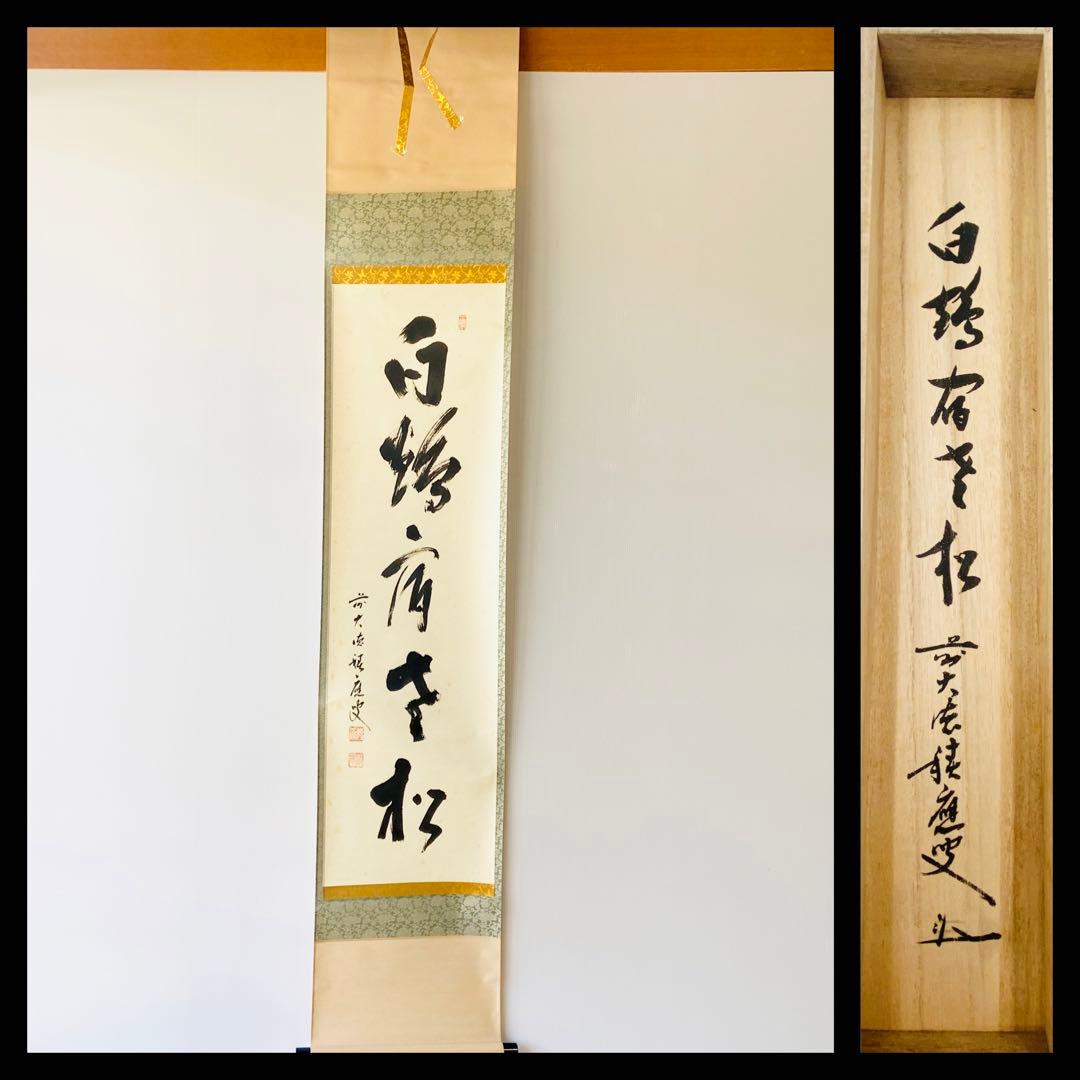 白鶴宿老松
前大徳積應叟
白鶴宿老松 前大徳積應叟